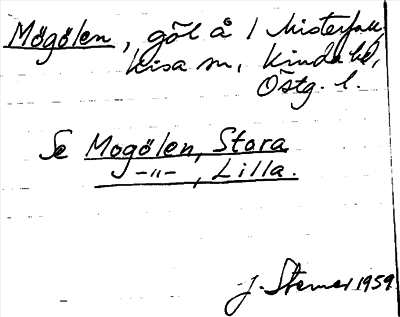 Mögölen, göl å 1 Misterfall,
Kisa sn, Kinda hd,
Östg. l.
Se Mogölen, Stora
-"- , Lilla.
J. Sterner 1959